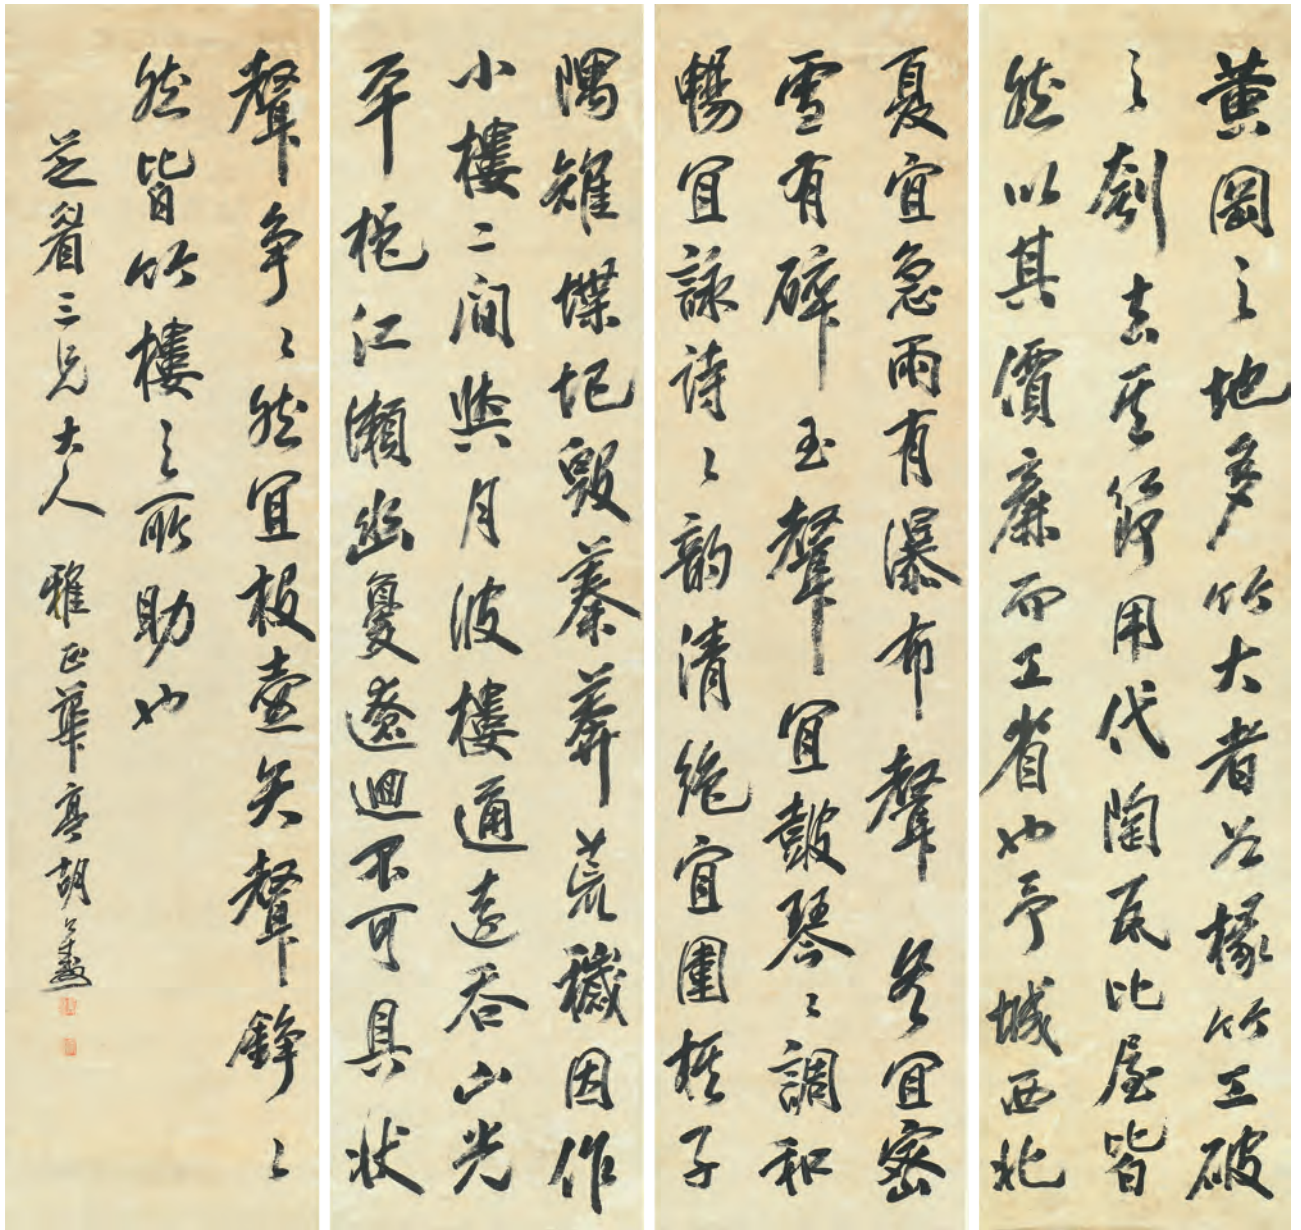 黄岡之地多竹大者如椽竹工破
之刳去其節用代陶瓦比屋皆
然以其價廉而工省也予城西北
夏宜急雨有瀑布聲冬宜密
雪有碎玉聲宜鼓琴々調和
暢宜詠詩々韵清絶宜圍棋子
隅雉堞圮毀蓁莽荒穢因作
小樓二間與月波樓通遠吞山光
平挹江瀨幽夐遼迥不可具狀
聲争々然宜投壺矢聲錚々
然皆竹樓之所助也
芝眉三兄大人 雅正華亭胡公壽